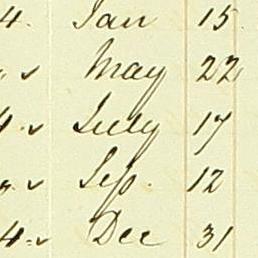 4. Jan 15
May 22
4. July 17
Sep. 12
4. Dec 31